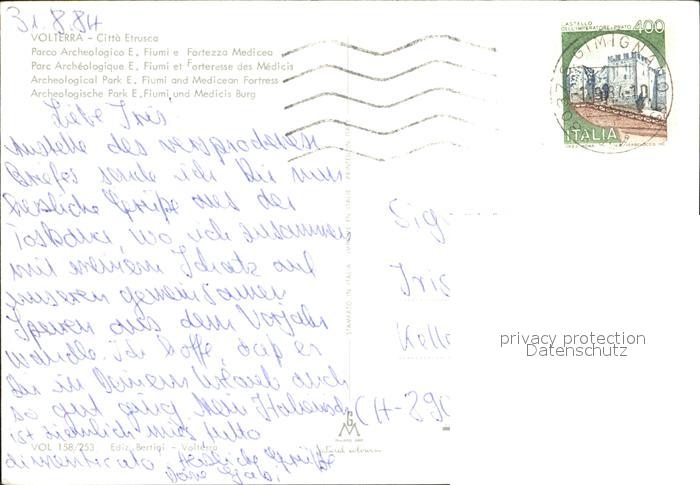 31.8.84
VOLTERRA - Città Etrusca
Parco Archeologico E. Fiumi e Fortezza Medicea
Parc Archéologique E. Fiumi et Forteresse des Médicis
Archeological Park E. Fiumi and Medicean Fortress
Archeologische Park E. Fiumi und Medicis Burg
CASTELLO
DELL'IMPERATORE - PRATO 400
S. GIMIGNANO
ITALIA
Liebe Iris
Anstelle des versprochenen
Briefes sende ich Dir nun
herzliche Grüsse aus der
Toskana, wo ich zusammen
mit meinem Schatz auf
unseren gemeinsamen
Spuren aus dem Vorjahr
wandle. Ich hoffe, dass es
Dir in Deinem Urlaub auch
so gut ging. Mein Italienisch
ist ziemlich mies, tutto
dimenticato. Herzliche Grüsse
Deine Gabi
Iris
CH-
VOL 158/253 Ediz. Bertini - Volterra
privacy protection
Datenschutz